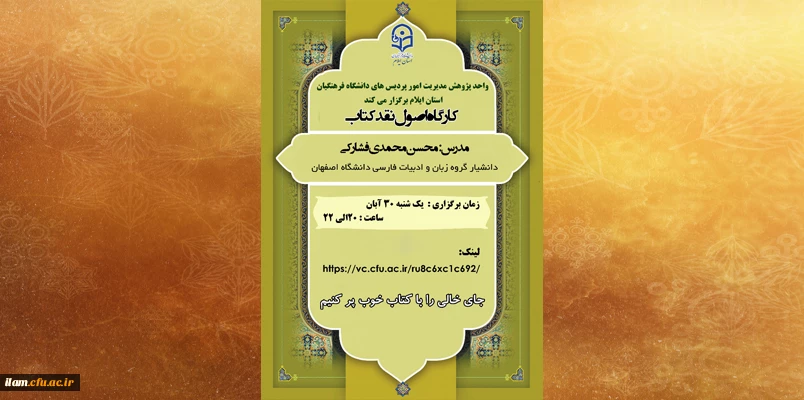 واحد پژوهش مدیریت امور پردیس های دانشگاه فرهنگیان
استان ایلام برگزار می کند
کارگاه اصول نقد کتاب
مدرس: محسن محمدی فشارکی
دانشیار گروه زبان و ادبیات فارسی دانشگاه اصفهان
زمان برگزاری : یک شنبه ۳۰ آبان
ساعت : ۲۰الی ۲۲
لینک:
https://vc.cfu.ac.ir/ru8c6xc1c692/
جای خالی را با کتاب خوب پر کنیم
ilam.cfu.ac.ir